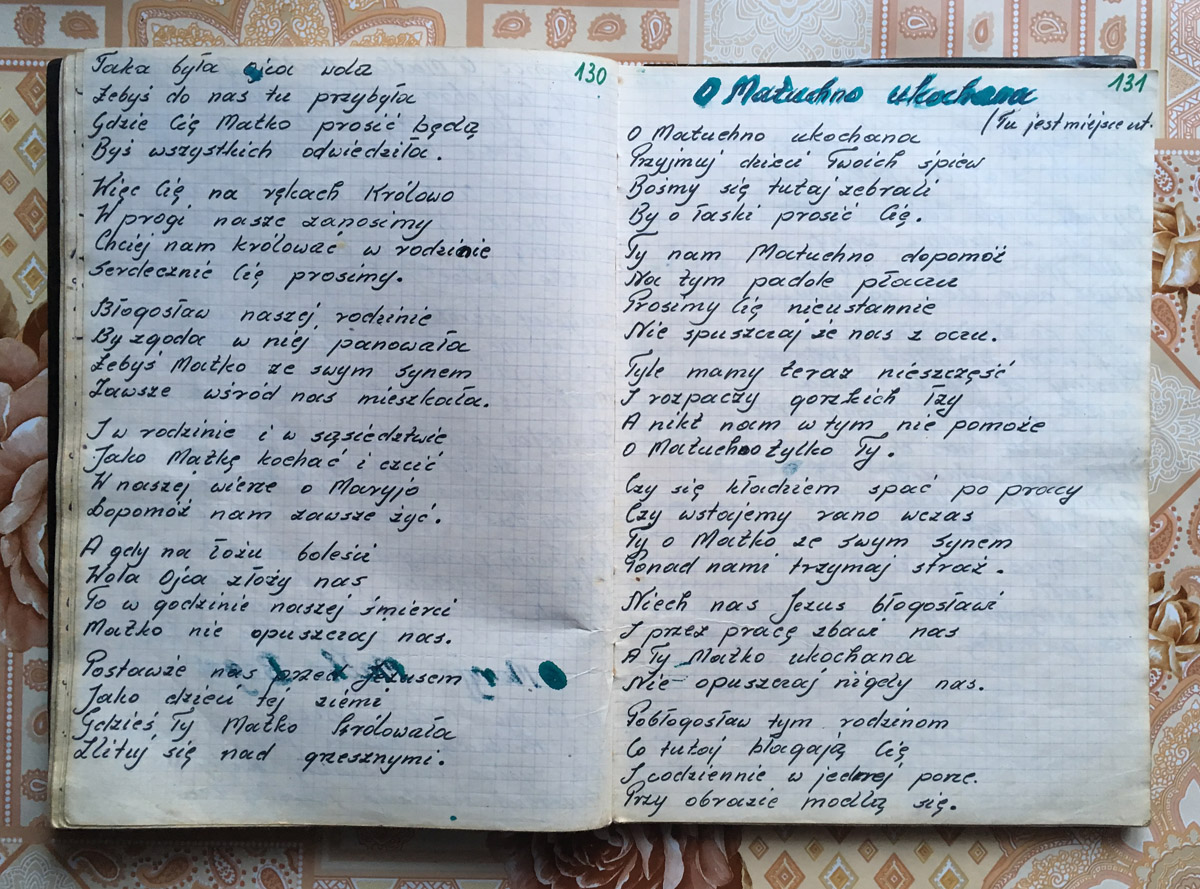 130
Taka była Ojca wola
Żebyś do nas tu przybyła
Gdzie Cię Matko prosić będą
Byś wszystkich odwiedziła.
Więc Cię na rękach Królowo
W progi nasze zanosimy
Chciej nam królować w rodzinie
Serdecznie Cię prosimy.
Błogosław naszej rodzinie
By zgoda w niej panowała
Żebyś Matko ze swym Synem
Zawsze wśród nas mieszkała.
I w rodzinie i w sąsiedztwie
Jako Matkę kochać i czcić
W naszej wierze o Maryjo
Dopomóż nam zawsze żyć.
A gdy na łożu boleści
Wola Ojca złoży nas
To w godzinie naszej śmierci
Matko nie opuszczaj nas.
Postawże nas przed Jezusem
Jako dzieci tej ziemi
Gdzieś Ty Matko Królowała
Zlituj się nad grzesznymi.
131
O Matuchno ukochana
(Tu jest miejsce ut.
O Matuchno ukochana
Przyjmuj dzieci Twoich śpiew
Bośmy się tutaj zebrali
By o łaski prosić Cię.
Ty nam Matuchno dopomóż
Na tym padole płaczu
Prosimy Cię nieustannie
Nie spuszczaj że nas z oczu.
Tyle mamy teraz nieszczęść
I rozpaczy gorzkich łzy
A nikt nam w tym nie pomoże
O Matuchno tylko Ty.
Czy się kładziem spać po pracy
Czy wstajemy rano wczas
Ty o Matko ze swym Synem
Ponad nami trzymaj straż.
Niech nas Jezus błogosławi
I przez pracę zbawi nas
A Ty Matko ukochana
Nie opuszczaj nigdy nas.
Pobłogosław tym rodzinom
Co tutaj błagają Cię
I codziennie w jednej porze.
Przy obrazie modlą się.